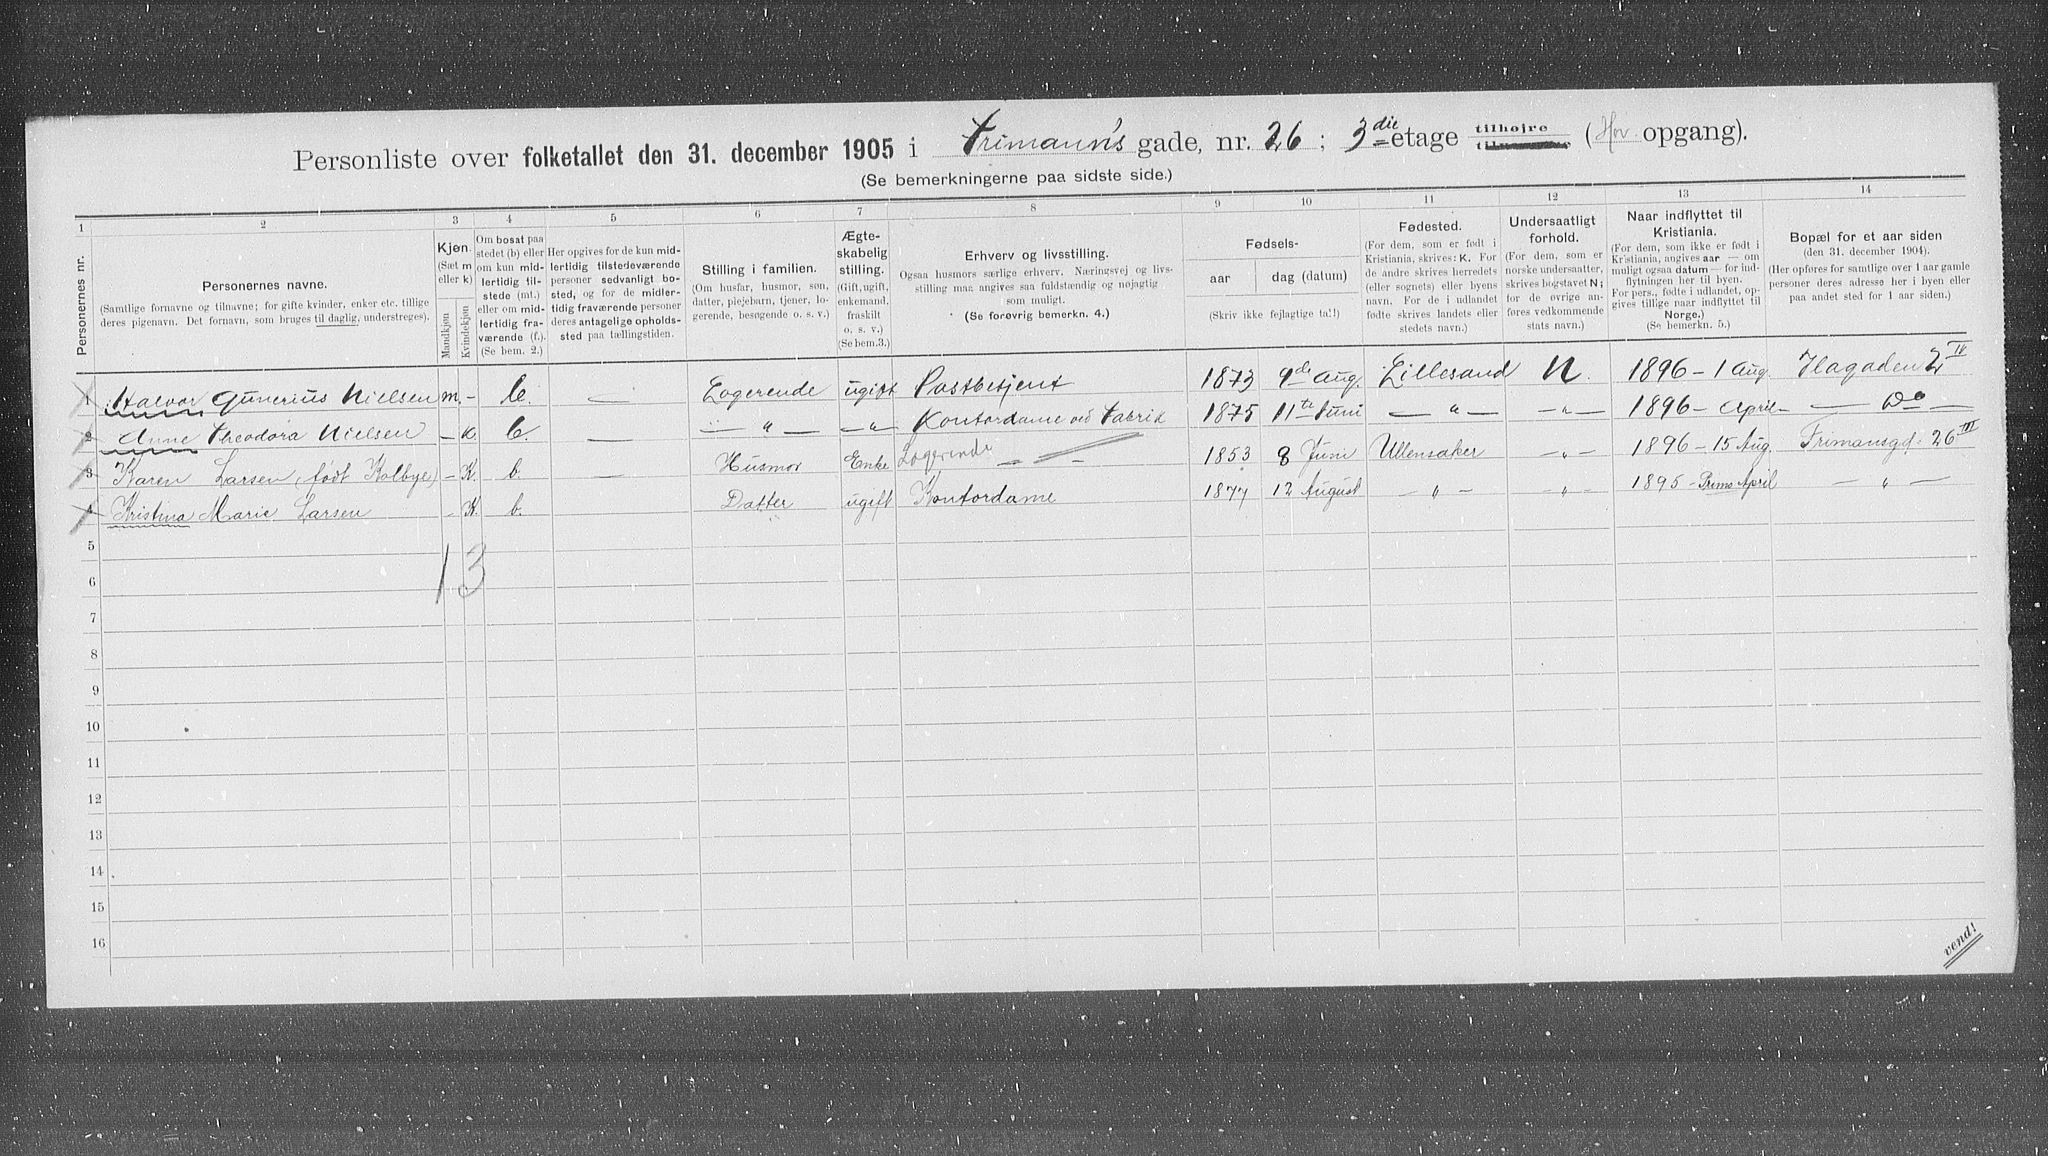 Personliste over folketallet den 31. december 1905 i Frimann's gade, nr. 26 ; 3die etage tilhøjre (Hov opgang).
(Se bemerkningerne paa sidste side.)
1 2 3 4 5 6 7 8 9 10 11 12 13 14
Personernes nr.
Personernes navne.
(Samtlige fornavne og tilnavne; for gifte kvinder, enker etc. tillige
deres pigenavn. Det fornavn, som bruges til daglig, understreges).
Kjøn.
(Sæt m
eller k)
Mandkjøn
Kvindekjøn
Om bosat paa
stedet (b) eller
om kun mid-
lertidig til-
stede (mt.)
eller om mid-
lertidig fra-
værende (f.).
(Se bem. 2.)
Her opgives for de kun mid-
lertidig tilstedeværende
personer sedvanligt bo-
sted, og for de midler-
tidig fraværende personer
deres antagelige opholds-
sted paa tællingstiden.
Stilling i familien.
(Om husfar, husmor, søn,
datter, plejebarn, tjener, lo-
gerende, besøgende o. s. v.)
Ægte-
skabelig
stilling.
(Gift, ugift,
enkemand,
fraskilt
o. s. v.)
(Se bem.3.)
Erhverv og livsstilling.
Ogsaa husmors særlige erhverv. Næringsvej og livs-
stilling maa angives saa fuldstændig og nøjagtig
som muligt.
(Se forøvrig bemerkn. 4.)
Fødsels-
aar
dag (datum)
(Skriv ikke fejlagtige tal!)
Fødested.
(For dem, som er født i
Kristiania, skrives: K. For
de andre skrives herredets
(eller sognets) eller byens
navn. For de i udlandet
fødte skrives landets eller
stedets navn.)
Undersaatligt
forhold.
(For dem, som er
norske undersaatter,
skrives bogstavet N;
for de øvrige an-
føres vedkommende
stats navn.)
Naar indflyttet til
Kristiania.
(For dem, som ikke er født i
Kristiania, angives aar — om
muligt ogsaa datum — for ind-
flytningen her til byen.
For pers., fødte i udlandet, op-
gives tillige naar indflyttet til
Norge.)
(Se bemerkn. 5.)
Bopæl for et aar siden
(den 31. december 1904).
(Her opføres for samtlige over 1 aar gamle
personer deres adresse her i byen eller
paa andet sted for 1 aar siden.)
1 Halvor Gunerius Nielsen m. - b. — Logerende ugift Postbetjent 1873 9de Aug. Lillesand N. 1896 - 1 Aug. Ilagaden 2 IV
2 Anne Theodora Nielsen - K. b. — — " — — " — Kontordame ved Fabrik 1875 11te Juni — " — — " — 1896 - April - — Do —
3 Karen Larsen (født Kolbye) - K. b. — Husmor Enke Logerende 1853 8 Juni Ullensaker — " — 1896 - 15 Aug. Frimansgd. 26 III
4 Kristina Marie Larsen - K. b. Datter ugift Kontordame 1877 12 August — " — — " — 1895 - Primo April — " —
5
13
6
7
8
9
10
11
12
13
14
15
16
vend!